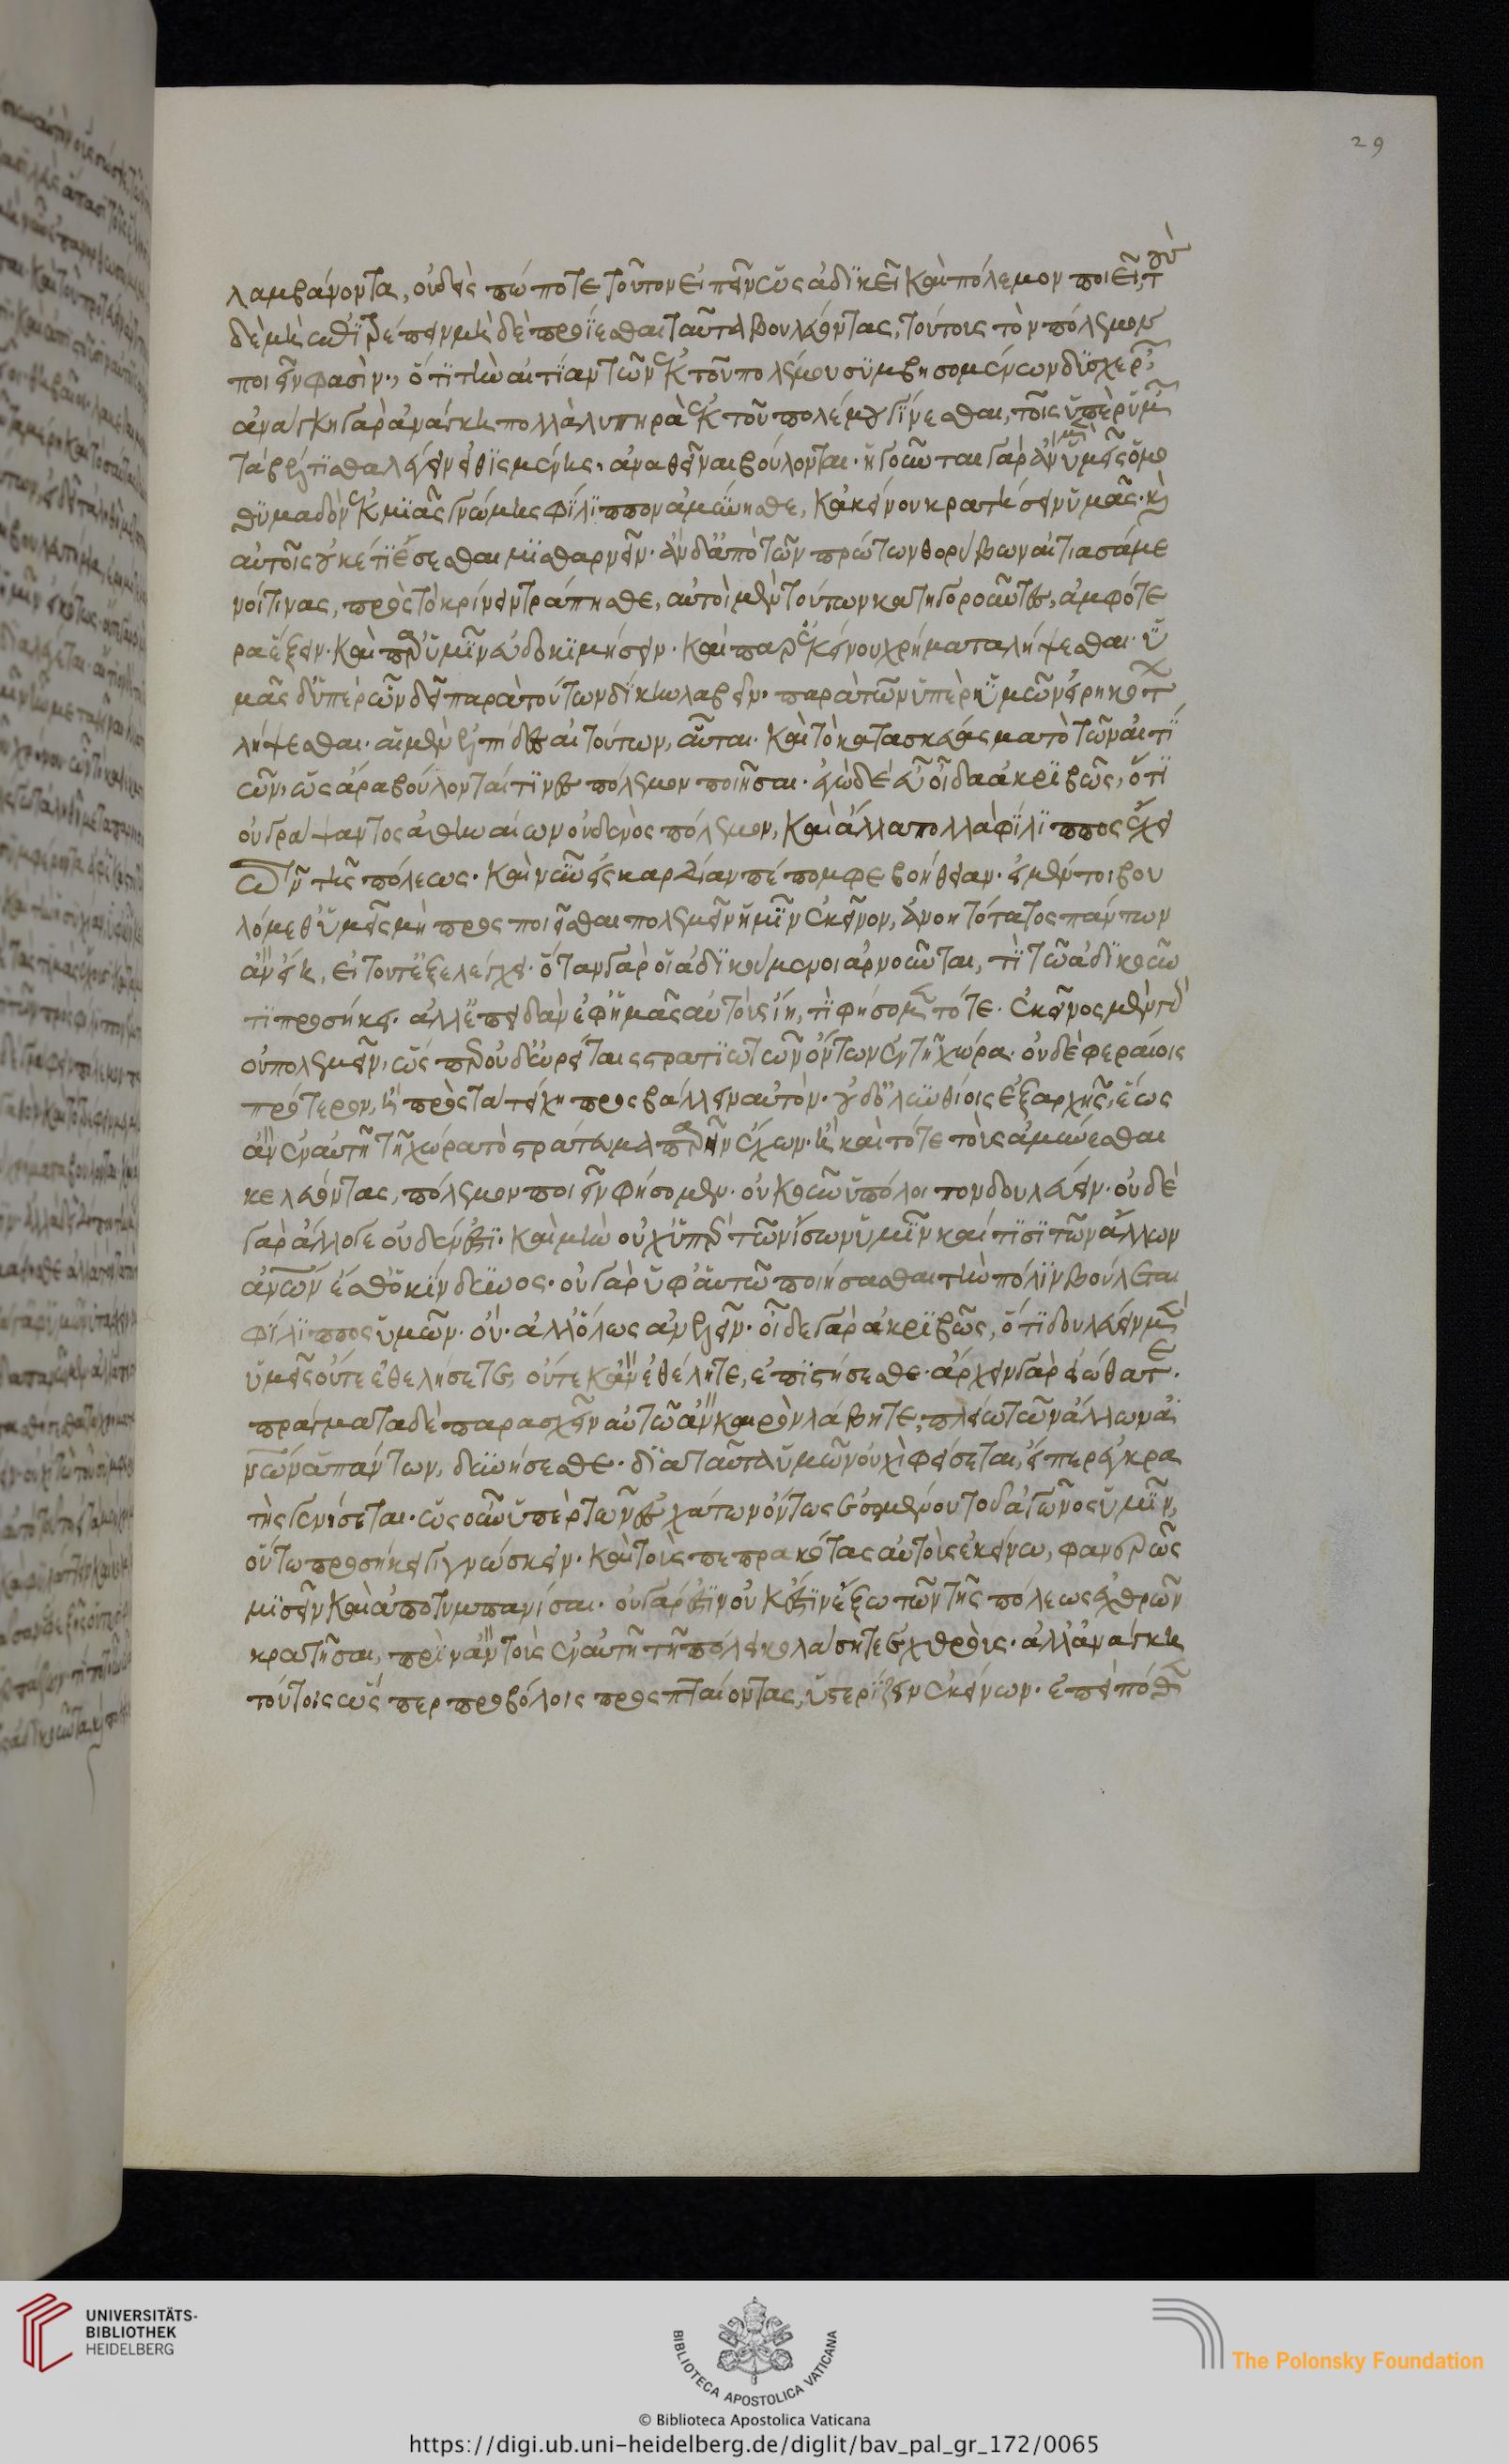 λαμβάνοντα, οὐδεὶς πώποτε τοῦτον εἰπεῖν ὡς ἀδικεῖ καὶ πόλεμον ποιεῖ, τοὺς
δὲ μὴ ἐπιτρέπειν μηδὲ προΐεσθαι ταῦτα βουλεύοντας, τούτοις τὸν πόλεμον
ποιεῖν φασὶν·, ὅτι τὴν αἰτίαν τῶν ἐκ τοῦ πολέμου συμβησομένων δυσχερῶν,
ἀνάγκη γὰρ ἀνάγκη πολλὰ λυπηρὰ ἐκ τοῦ πολέμου γίνεσθαι, τοῖς ὑπὲρ ὑμῶν
τὰ βέλτιστα λέγειν εἰθισμένοις· ἀναθεῖναι βούλονται· ἡγοῦνται γὰρ ἂν μὲν ὑμεῖς ὁμο
θυμαδὸν ἐκ μιᾶς γνώμης φίλιππον ἀμύνησθε, κἀκείνου κρατήσειν ὑμᾶς· καὶ
αὐτοῖς οὐκέτι ἔσεσθαι μισθαρνεῖν· ἂν δ' ἀπὸ τῶν πρώτων θορύβων αἰτιασάμε
νοί τινας, πρὸς τὸ κρίνειν τράπησθε, αὐτοὶ μὲν τούτων κατηγοροῦντες, ἀμφότε
ρα ἕξειν· καὶ παρ' ὑμῖν εὐδοκιμήσειν· καὶ παρ' ἐκείνου χρήματα λήψεσθαι· ὑ
μᾶς δ' ὑπὲρ ὧν δεῖ παρὰ τούτων δίκην λαβεῖν· παρὰ τῶν ὑπὲρ ὑμῶν εἰρηκότων
λήψεσθαι· αἱ μὲν ἐλπίδες αἱ τούτων, αὗται· καὶ τὸ κατασκεύασμα τὸ τῶν αἰτι
ῶν, ὡς ἄρα βούλονταί τινες πόλεμον ποιῆσαι· ἐγὼ δὲ εὖ οἶδα ἀκριβῶς, ὅτι
οὐ γράψαντος ἀθηναίων οὐδενὸς πόλεμον, καὶ ἄλλα πολλὰ φίλιππος ἔχει
τῶν τῆς πόλεως· καὶ νῦν εἰς καρδίαν πέπομφε βοήθειαν· εἰ μέντοι βου
λόμεθ' ὑμεῖς μὴ προςποιεῖσθαι πολεμεῖν ἡμῖν ἐκεῖνον, ἀνοητότατος πάντων
ἂν εἴη, εἰ τοῦτ' ἐξελέγχει· ὅταν γὰρ οἱ ἀδικούμενοι ἀρνοῦνται, τί τῶ ἀδικοῦν
τι προσήκει· ἀλλ' ἐπειδὰν ἐφ' ἡμᾶς αὐτοὺς ἴη, τί φήσομεν τότε· ἐκεῖνος μὲν γὰρ
οὐ πολεμεῖν, ὥσπερ οὐδ' εὐρείταις στρατιωτῶν ὄντων ἐν τῆ χώρα· οὐδὲ φεραίοις
πρότερον, ἢ πρὸς τὰ τείχη προςβάλλειν αὐτὸν· οὐδ' ὀλυνθίοις ἐξ ἀρχῆς, ἕως
ἂν ἐν αὐτῆ τῆ χώρα τὸ στράτευμα παρῆν ἔχων· ἢ καὶ τότε τοὺς ἀμύνεσθαι
κελεύοντας, πόλεμον ποιεῖν φήσομεν· οὐκοῦν ὑπόλοιπον δουλεύειν· οὐδὲ
γὰρ ἄλλο γε οὐδέν ἐστι· καὶ μὴν οὐχ ὑπὲρ τῶν ἴσων ὑμῖν καί τισι τῶν ἄλλων
ἀνθρώπων ἔσθ' ὁ κίνδυνος· οὐ γὰρ ὑφ' αὑτῶ ποιήσασθαι τὴν πόλιν βούλεται
φίλιππος ὑμῶν· οὔ· ἀλλ' ὅλως ἀνελεῖν· οἶδε γὰρ ἀκριβῶς, ὅτι δουλεύειν μὲν
ὑμεῖς οὔτε ἐθελήσετε, οὔτε κἂν ἐθέλητε, ἐπιστήσεσθε· ἄρχειν γὰρ εἰώθατε·
πράγματα δὲ παρασχεῖν αὐτῶ ἂν καιρὸν λάβητε, πλείω τῶν ἄλλων ἀν
θρώπων ἁπάντων, δυνήσεσθε· διὰ ταῦτα ὑμῶν οὐχὶ φείσεται, εἴπερ ἐγκρα
τὴς γενήσεται· ὡς οὖν ὑπὲρ τῶν ἐσχάτων ὄντως ἐσομένου τοῦ ἀγῶνος ὑμῖν,
οὕτω προσήκει γιγνώσκειν· καὶ τοὺς πεπρακότας αὑτοὺς ἐκείνω, φανερῶς
μισεῖν καὶ ἀποτυμπανίσαι· οὐ γάρ ἐστιν οὐκ ἔστιν ἔξω τῶν τῆς πόλεως ἐχθρῶν
κρατῆσαι, πρὶν ἂν τοὺς ἐν αὐτῆ τῆ πόλει κολάσητε ἐχθροὺς· ἀλλ' ἀνάγκη
τούτοις ὥς περ προβόλοις προςπταίοντας, ὑστερίζειν ἐκείνων· ἐπεὶ πόθεν
29
UNIVERSITÄTS-
BIBLIOTHEK
HEIDELBERG
BIBLIOTECA APOSTOLICA VATICANA
The Polonsky Foundation
© Biblioteca Apostolica Vaticana
https://digi.ub.uni-heidelberg.de/diglit/bav_pal_gr_172/0065